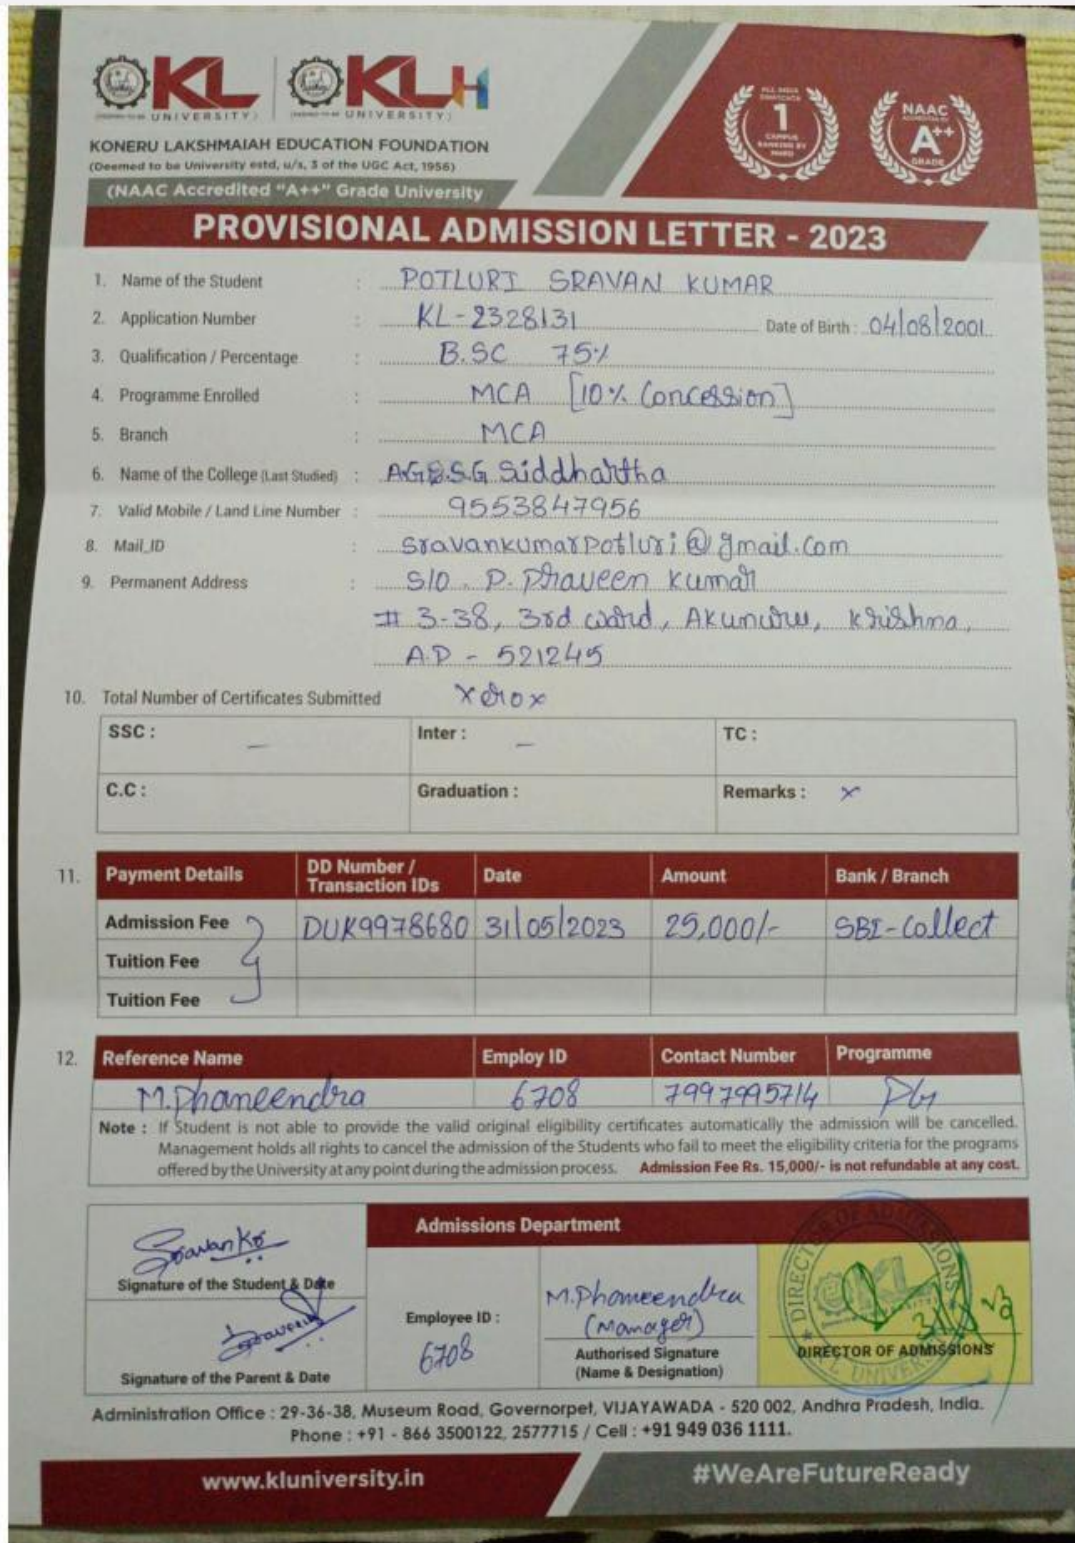 KL
(DEEMED TO BE UNIVERSITY)
KLH
(DEEMED TO BE UNIVERSITY)
KONERU LAKSHMAIAH EDUCATION FOUNDATION
(Deemed to be University estd, u/s, 3 of the UGC Act, 1956)
(NAAC Accredited "A++" Grade University
1
CAMPUS
RANKING BY
NAAC
ACCREDITED BY
A++
GRADE
PROVISIONAL ADMISSION LETTER - 2023
1. Name of the Student : POTLURI SRAVAN KUMAR
2. Application Number : KL-2328131 Date of Birth : 04/08/2001
3. Qualification / Percentage : B.SC 75%
4. Programme Enrolled : MCA [10% Concession]
5. Branch : MCA
6. Name of the College (Last Studied) : AG&SG Siddhartha
7. Valid Mobile / Land Line Number : 9553847956
8. Mail_ID : sravankumarpotluri@gmail.com
9. Permanent Address : S/O. P. Praveen Kumar
# 3-38, 3rd ward, Akunuru, Krishna,
A.P - 521245
10. Total Number of Certificates Submitted xerox
SSC : – Inter : – TC :
C.C : Graduation : Remarks : x
11. Payment Details DD Number / Transaction IDs Date Amount Bank / Branch
Admission Fee DUK9978680 31/05/2023 25,000/- SBI-Collect
Tuition Fee
Tuition Fee
12. Reference Name Employ ID Contact Number Programme
M.Phaneendra 6708 7997995714 PG
Note : If Student is not able to provide the valid original eligibility certificates automatically the admission will be cancelled.
Management holds all rights to cancel the admission of the Students who fail to meet the eligibility criteria for the programs
offered by the University at any point during the admission process. Admission Fee Rs. 15,000/- is not refundable at any cost.
Admissions Department
Sravan Kr
Signature of the Student & Date
Signature of the Parent & Date
Employee ID :
6708
M.Phaneendra
(Manager)
Authorised Signature
(Name & Designation)
DIRECTOR OF ADMISSIONS
DIRECTOR OF ADMISSIONS
Administration Office : 29-36-38, Museum Road, Governorpet, VIJAYAWADA - 520 002, Andhra Pradesh, India.
Phone : +91 - 866 3500122, 2577715 / Cell : +91 949 036 1111.
www.kluniversity.in
#WeAreFutureReady